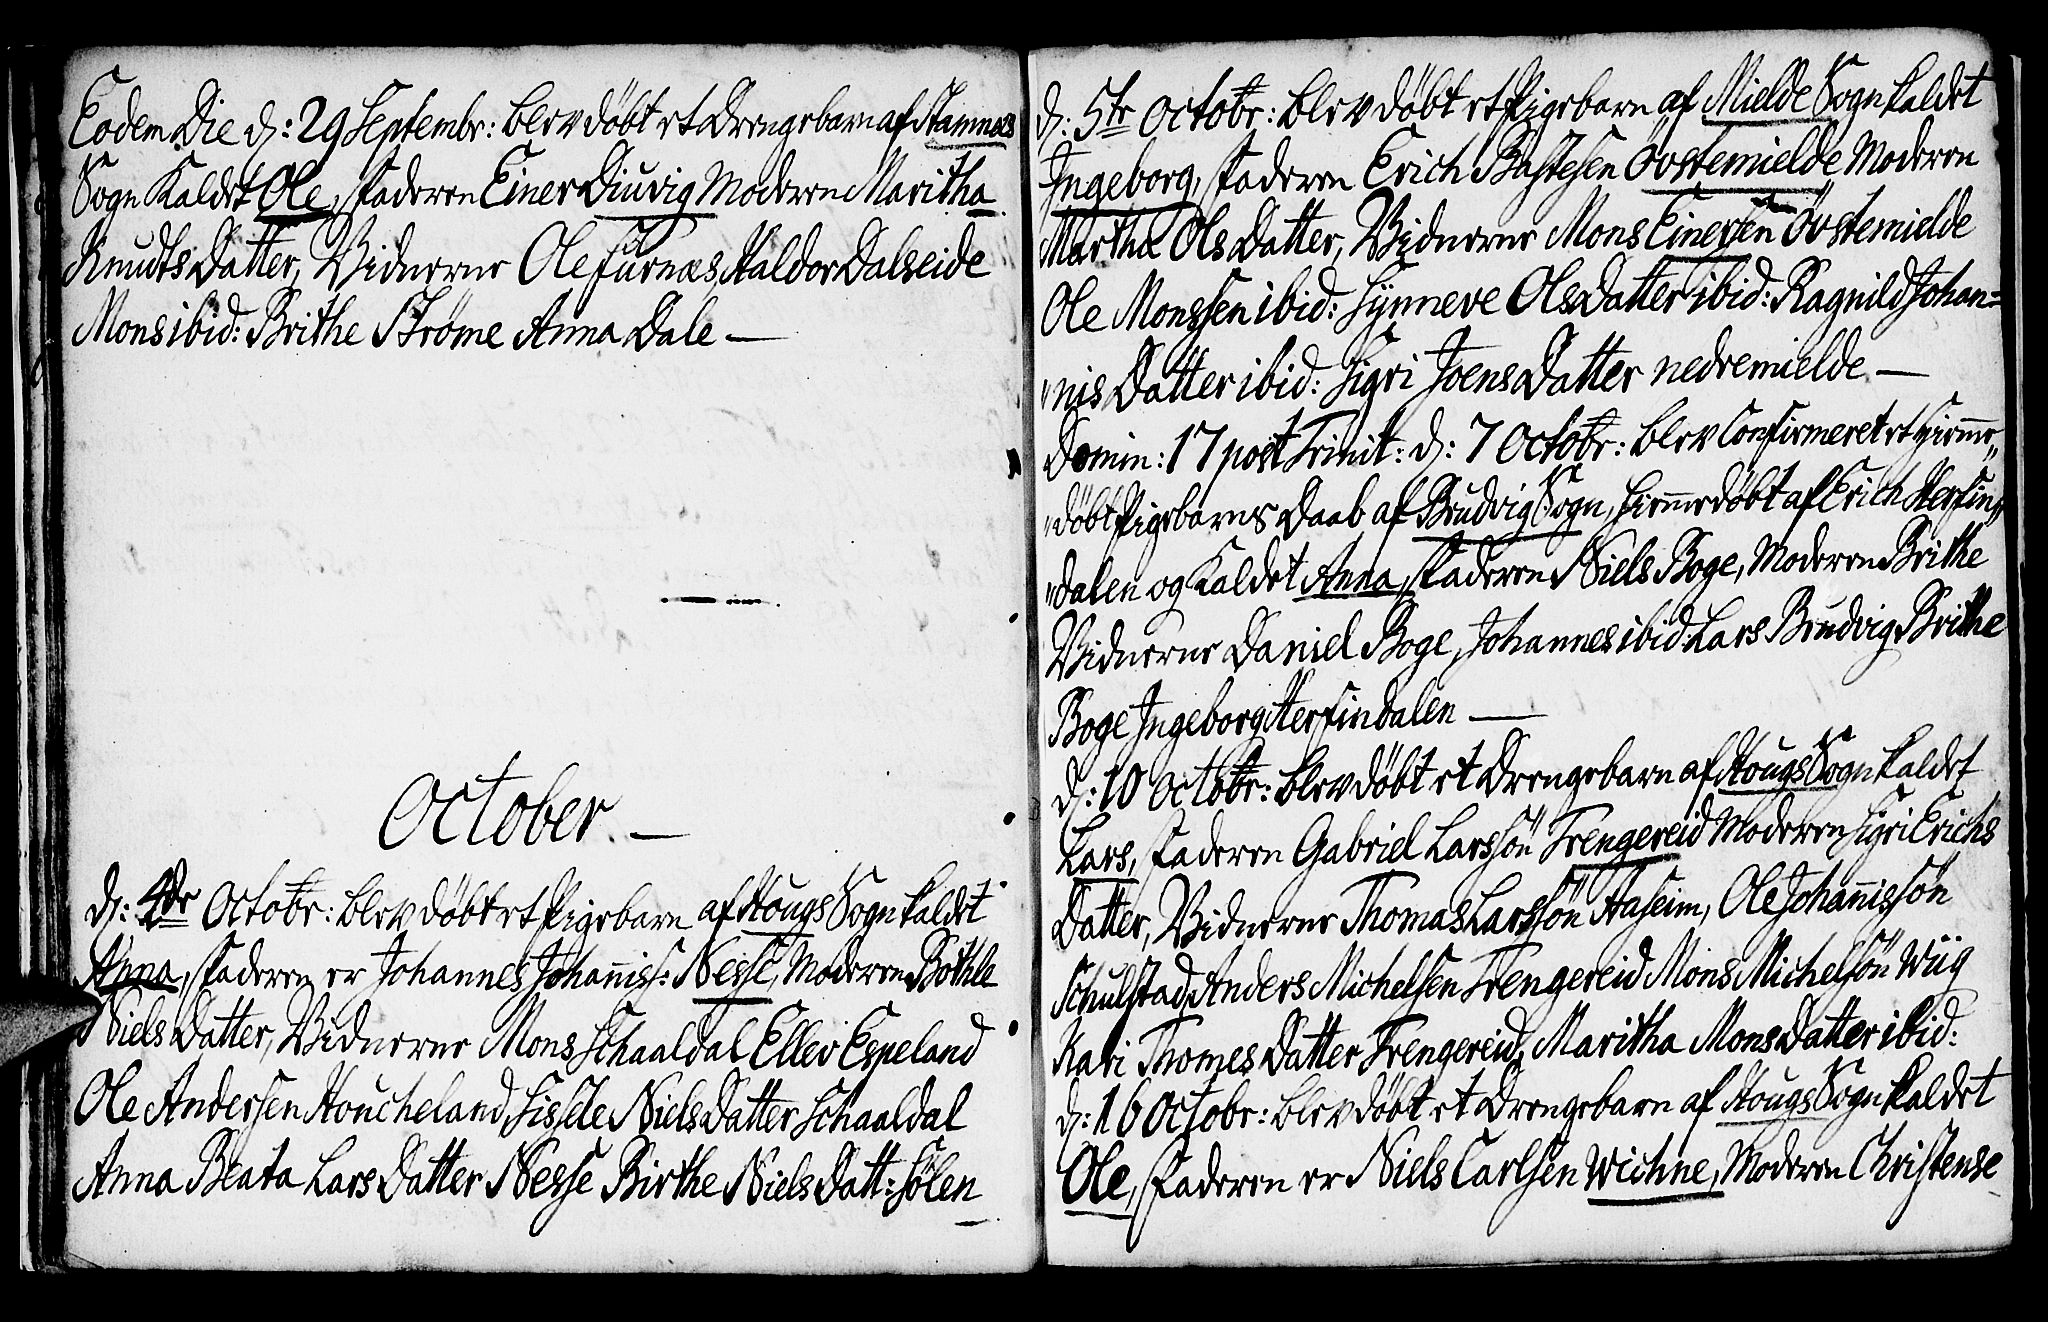 Eodem Die d: 29 Septembr: blev döbt et Drengebarn af Stamnæs
Sogn Kaldet Ole, Faderen Einer Diuvig Moderen Maritha
Knudts Datter, Vidnerne Ole Furnæs, Haldor Dalseide
Mons ibid: Brithe Ströme Anna Dale —
October. —
d: 4de Octobr: blev döbt et Pigebarn af Hougs Sogn kaldet
Anna, Faderen er Johannes Johanniss: Nesse, Moderen Böthle
Niels Datter, Vidnerne Mons Schaaldal Ellev Espeland
Ole Andersen Houcheland, Sissele Niels Datter Schaaldal
Anna Beata Lars Datter Nesse Birthe Niels Datt: Sölen
d: 5te Octobr: blev döbt et Pigebarn af Mielde Sogn kaldet
Ingeborg, Faderen Erich Bastesen Övstemielde Moderen
Martha Ols Datter, Vidnerne Mons Einersen Övstemielde
Ole Monssen ibid: Synneve Ols Datter ibid: Ragnild Johan=
"nis Datter ibid: Sigri Joens Datter nedremielde —
Domin: 17 post Trinit: d: 7 Octobr: blev Confirmeret et hiemme"
"döbt Pigebarns Daab af Brudvig Sogn, hiemmedöbt af Erich Herfin"
"dalen og Kaldet Anna, Faderen Niels Boge, Moderen Brithe
Vidnerne Daniel Boge, Johannes ibid: Lars Brudvig, Brithe
Boge Ingeborg Herfindalen —
d: 10 Octobr: blev döbt et Drengebarn af Hougs Sogn kaldet
Lars, Faderen Gabriel Larssön Trengereid Moderen Sigri Erichs
Datter, Vidnerne Thomas Larssön Haseim, Ole Johannissön
Schulstad, Anders Michelsen Trengereid Mons Michelsön Wiig
Kari Thomes Datter Trengereid, Maritha Mons Datter ibid:
d: 16 Octobr: blev döbt et Drengebarn af Hougs Sogn kaldet
Ole, Faderen er Niels Carlsen Wichne, Moderen Christense